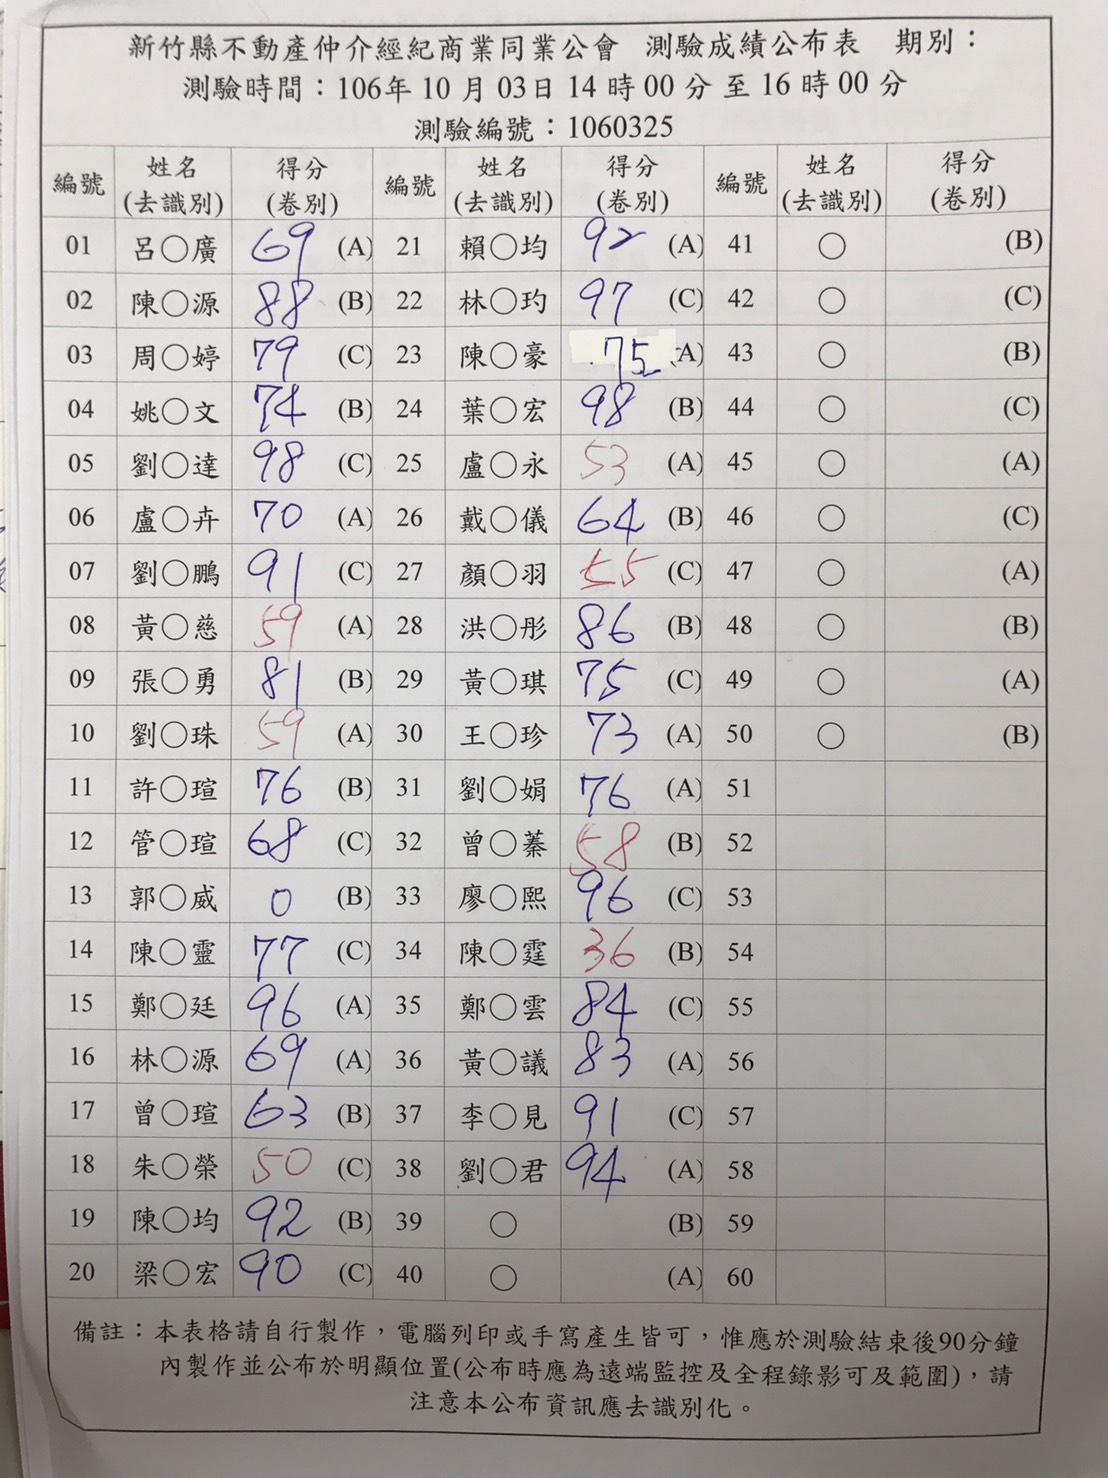 新竹縣不動產仲介經紀商業同業公會 測驗成績公布表 期別：
測驗時間：106年 10 月 03日 14 時 00 分 至 16 時 00 分
測驗編號：1060325
編號 姓名(去識別) 得分(卷別) 編號 姓名(去識別) 得分(卷別) 編號 姓名(去識別) 得分(卷別)
01 呂○廣 69 (A) 21 賴○均 92 (A) 41 ○ (B)
02 陳○源 88 (B) 22 林○玓 97 (C) 42 ○ (C)
03 周○婷 79 (C) 23 陳○豪 75 (A) 43 ○ (B)
04 姚○文 74 (B) 24 葉○宏 98 (B) 44 ○ (C)
05 劉○達 98 (C) 25 盧○永 53 (A) 45 ○ (A)
06 盧○卉 70 (A) 26 戴○儀 64 (B) 46 ○ (C)
07 劉○鵬 91 (C) 27 顏○羽 55 (C) 47 ○ (A)
08 黃○慈 59 (A) 28 洪○彤 86 (B) 48 ○ (B)
09 張○勇 81 (B) 29 黃○琪 75 (C) 49 ○ (A)
10 劉○珠 59 (A) 30 王○珍 73 (A) 50 ○ (B)
11 許○瑄 76 (B) 31 劉○娟 76 (A) 51
12 管○瑄 68 (C) 32 曾○蓁 58 (B) 52
13 郭○威 0 (B) 33 廖○熙 96 (C) 53
14 陳○靈 77 (C) 34 陳○霆 36 (B) 54
15 鄭○廷 96 (A) 35 鄭○雲 84 (C) 55
16 林○源 69 (A) 36 黃○議 83 (A) 56
17 曾○瑄 63 (B) 37 李○見 91 (C) 57
18 朱○榮 50 (C) 38 劉○君 94 (A) 58
19 陳○均 92 (B) 39 ○ (B) 59
20 梁○宏 90 (C) 40 ○ (A) 60
備註：本表格請自行製作，電腦列印或手寫產生皆可，惟應於測驗結束後90分鐘
內製作並公布於明顯位置(公布時應為遠端監控及全程錄影可及範圍)，請
注意本公布資訊應去識別化。